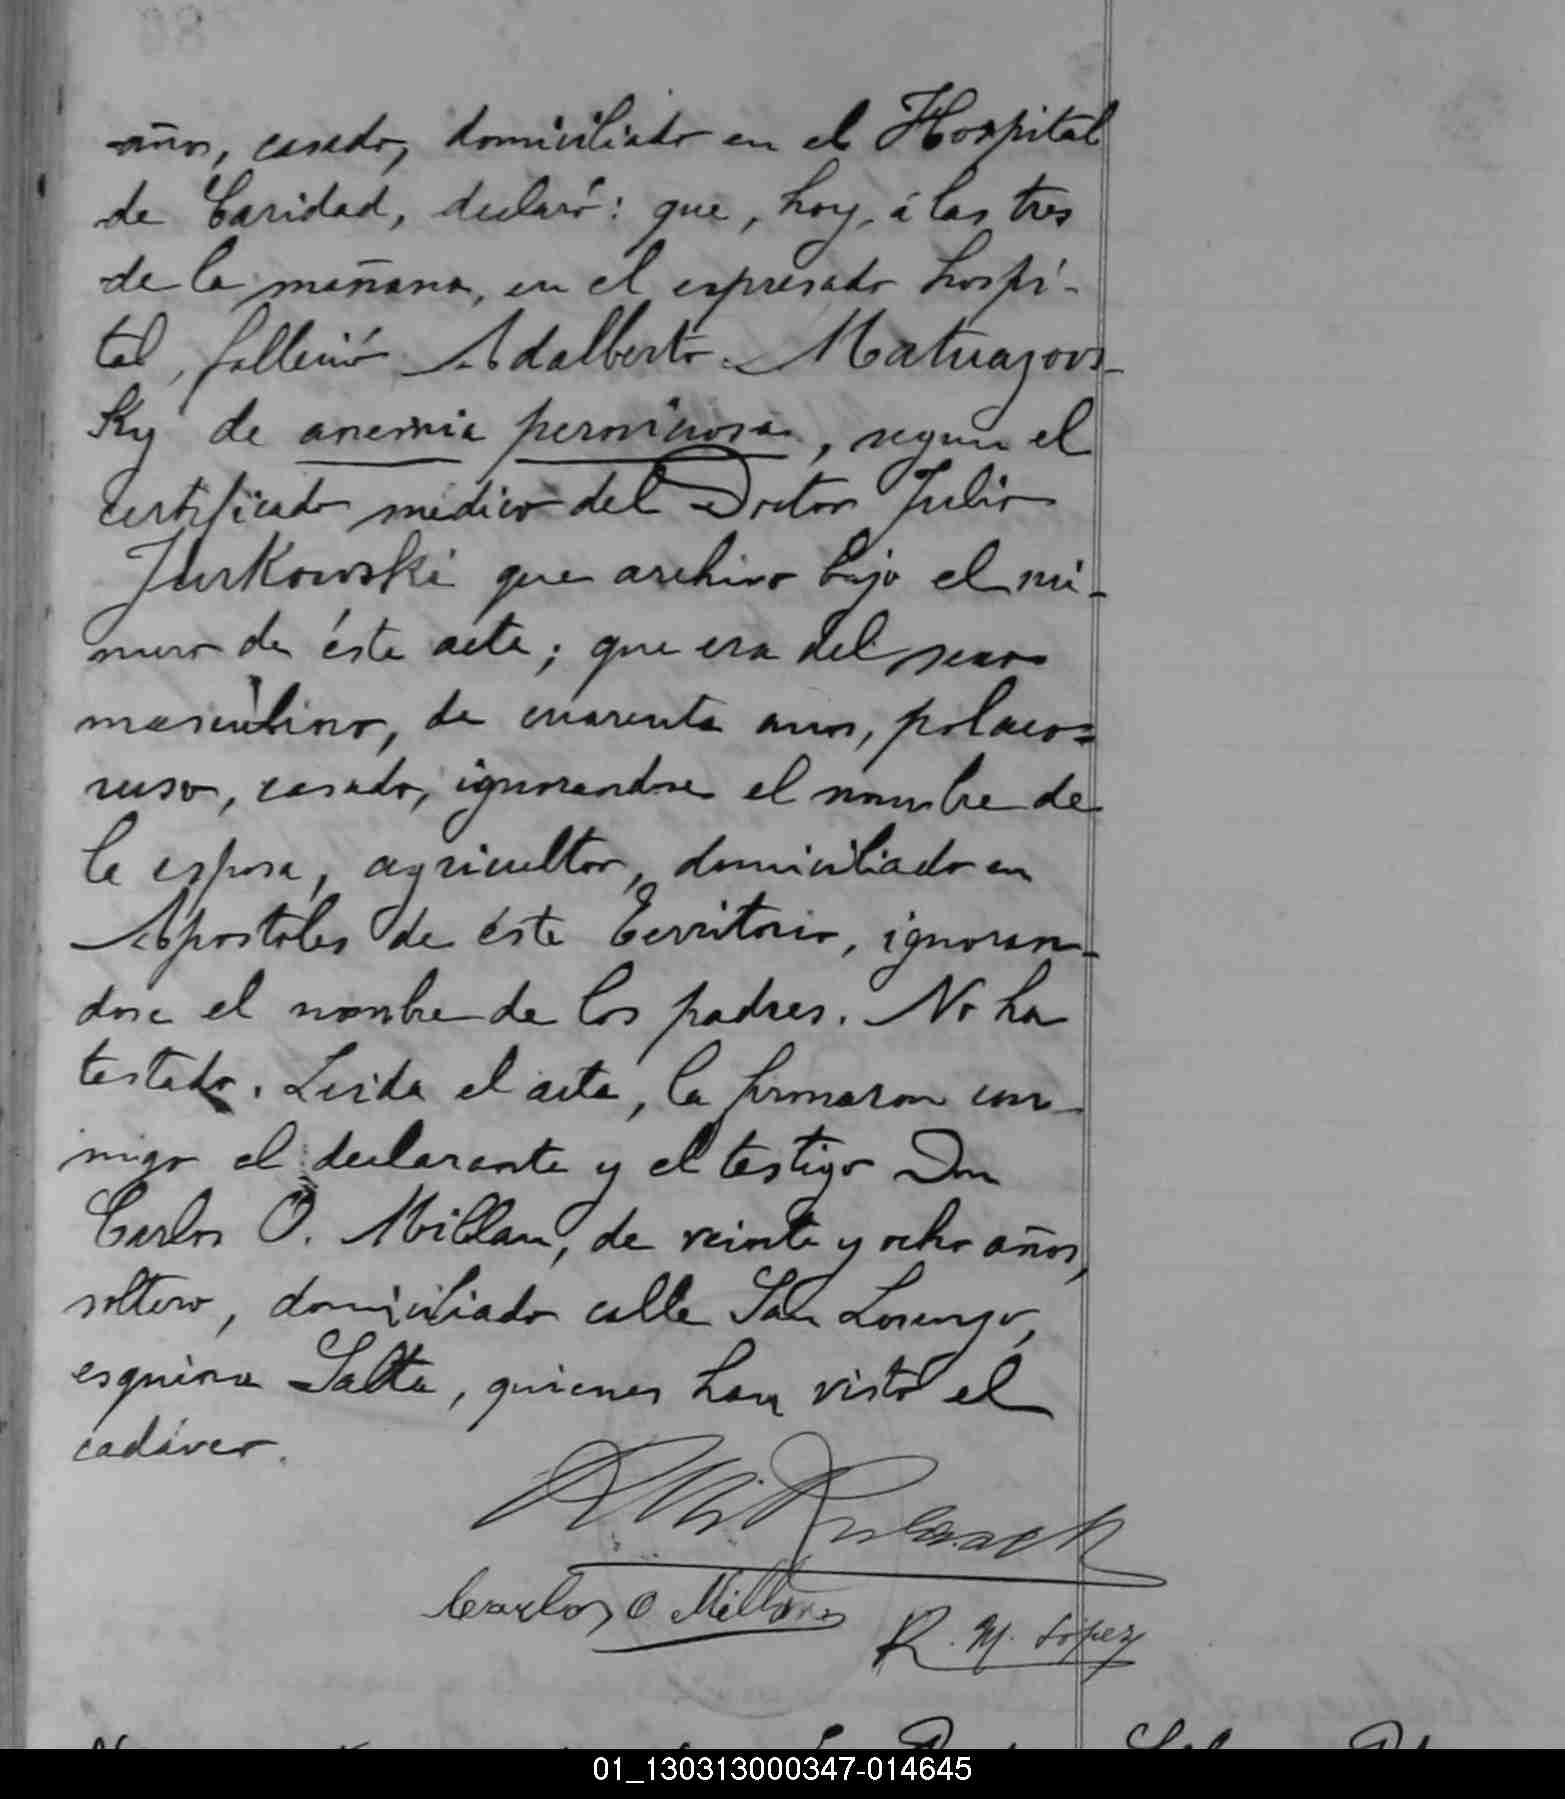 años, casado, domiciliado en el Hospital
de Caridad, declaró: que, hoy, á las tres
de la mañana, en el expresado hospi-
tal, falleció Adalberto Matuazovs-
Ky de anemia perniciosa, segun el
certificado médico del Doctor Julio
Jurkowski que archivo bajo el nú-
mero de éste acta; que era del sexo
masculino, de cuarenta anos, polaco=
ruso, casado, ignorandose el nombre de
la esposa, agricultor, domiciliado en
Apostoles de éste Territorio, ignoran-
dose el nombre de los padres. No ha
testado. Leida el acta, la firmaron con-
migo el declarante y el testigo Don
Carlos O. Millan, de veinte y ocho años,
soltero, domiciliado calle San Lorenzo,
esquina Salta, quienes han visto el
cadáver.
Carlos O Millan
R. M. López
01_130313000347-014645